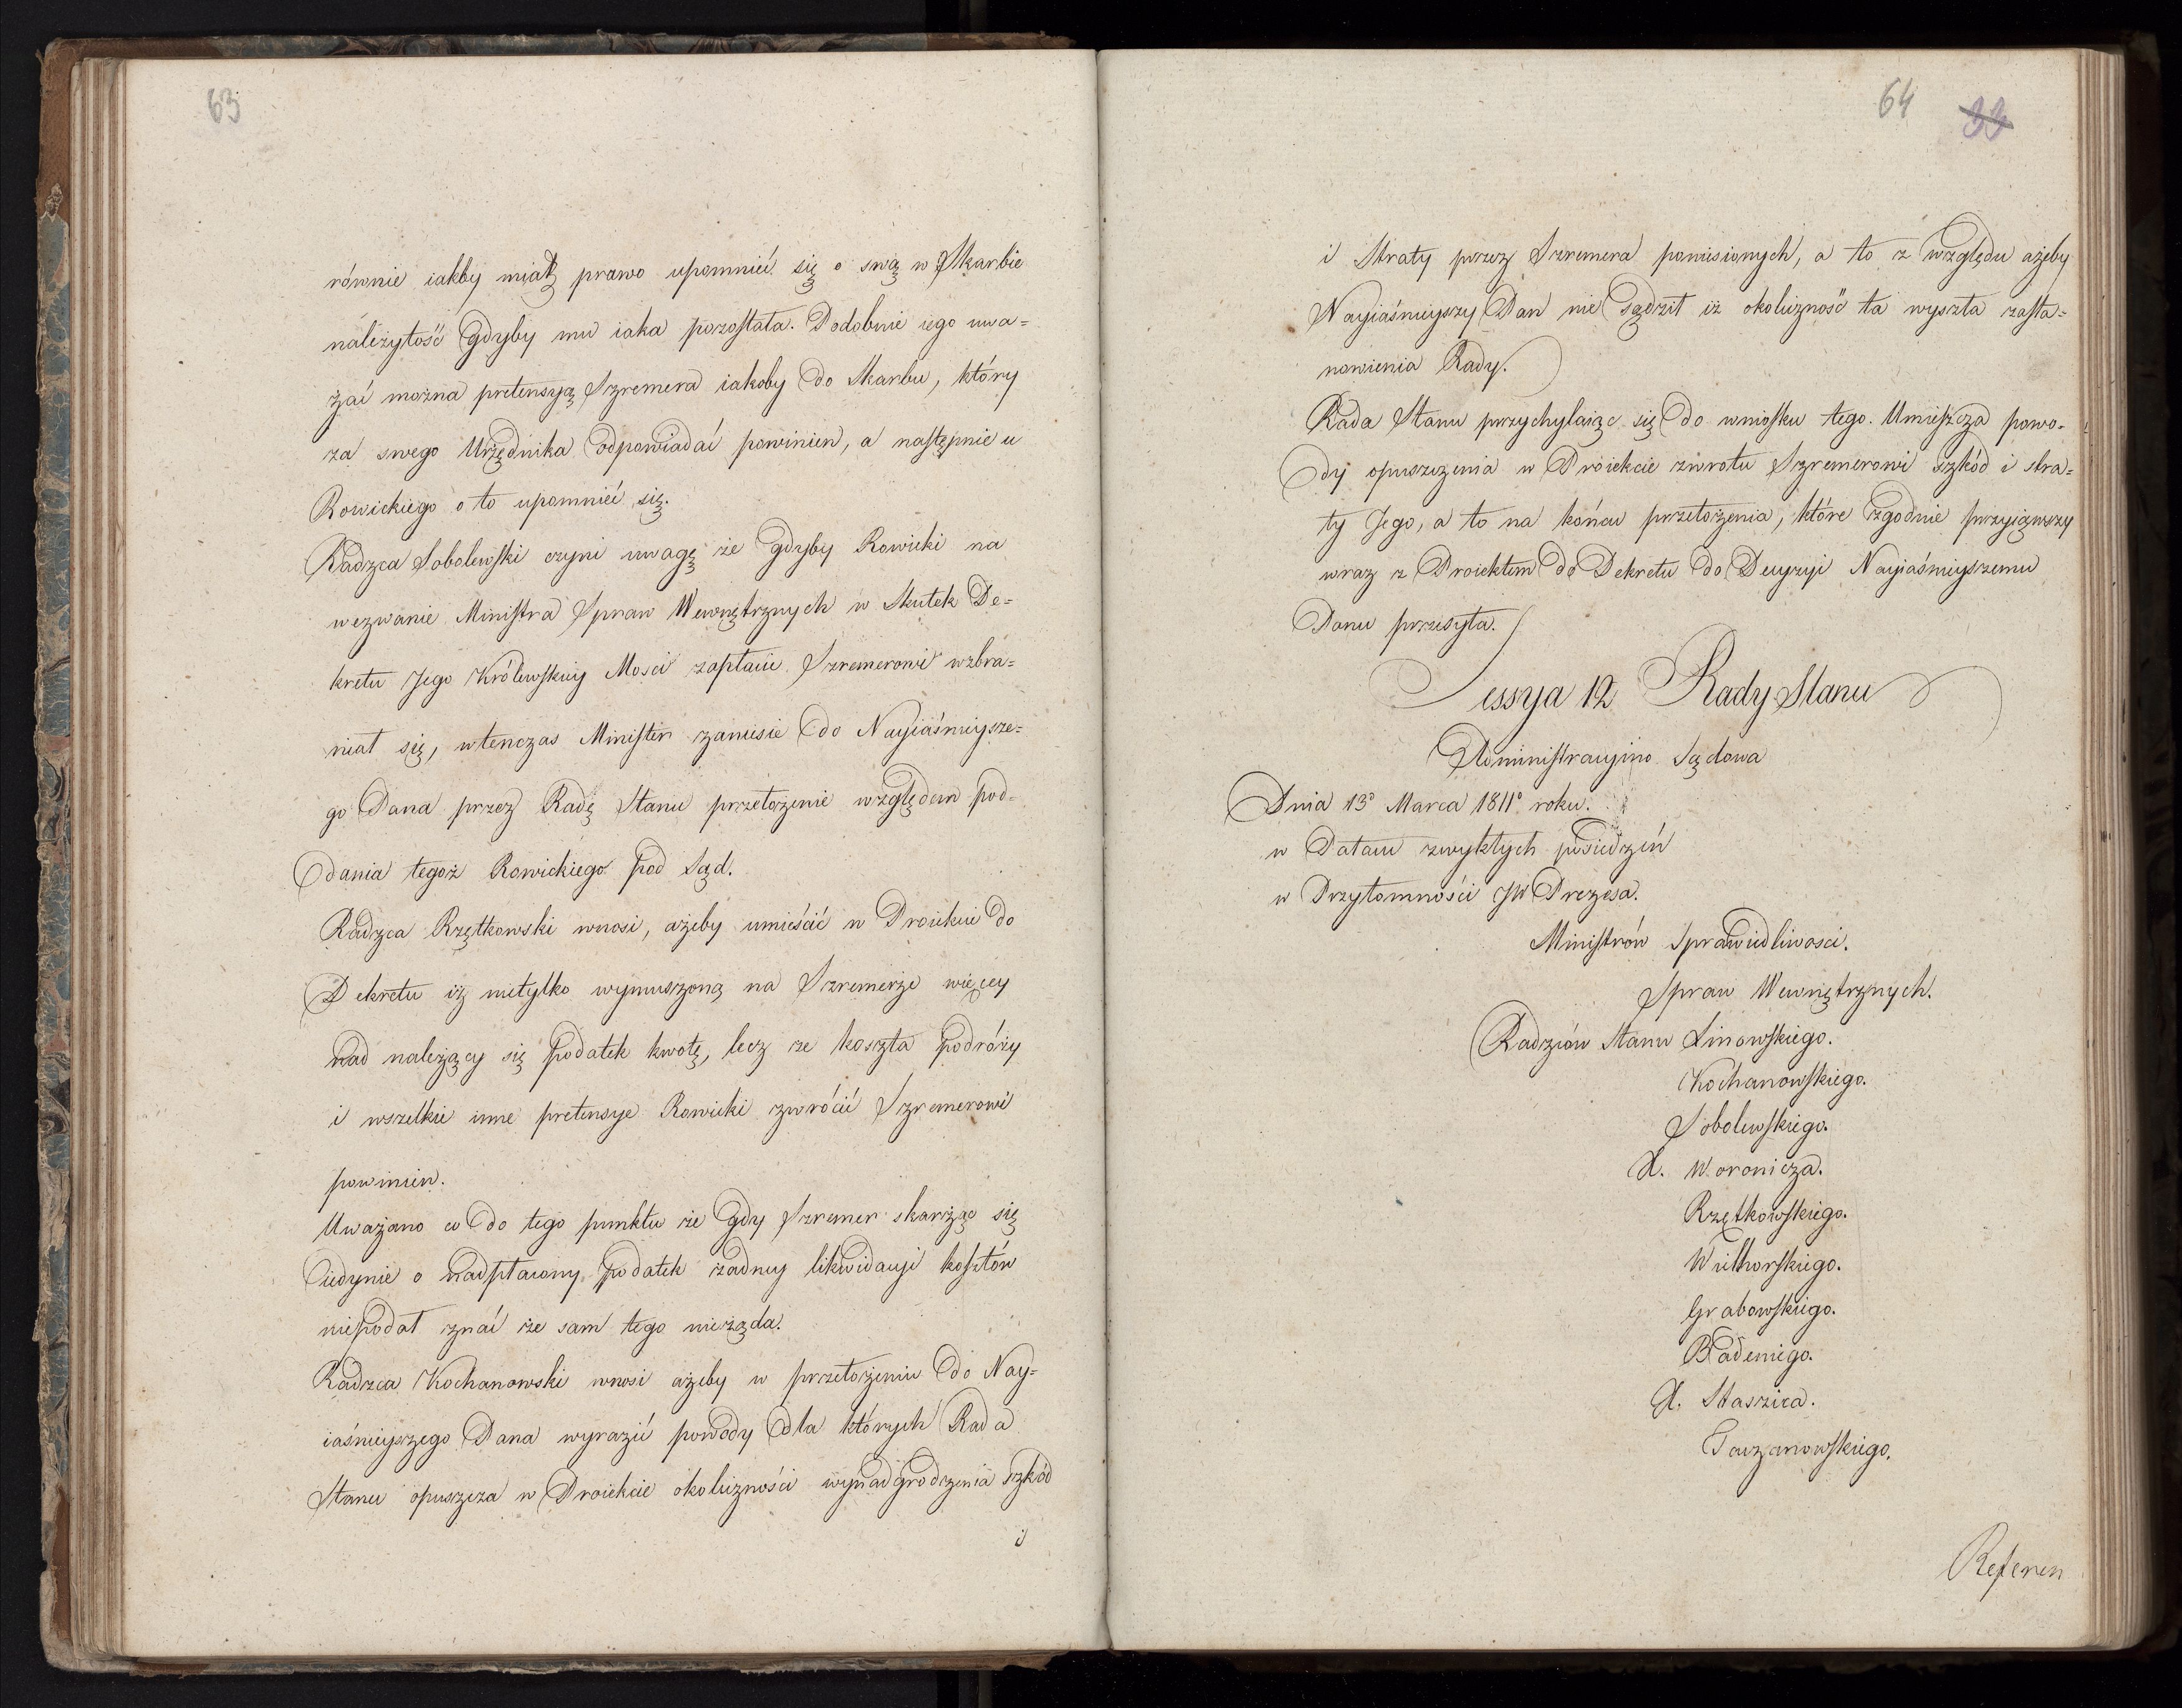 63
równie iakby miał prawo upomnieć się o swą w Skarbie
należytość gdyby mu iaka pozostała. Podobnie iego uwa=
żać można pretensyą Szremera iakoby do Skarbu, który
za swego Urzędnika odpowiadać powinien, a następnie u
Rowickiego o to upomnieć się.
Radzca Sobolewski czyni uwagę że gdyby Rowicki na
wezwanie Ministra Spraw Wewnętrznych w Skutek De=
kretu Jego Królewskiey Mosci zapłacić Szremerowi wzbra=
niał się, wtenczas Minister zaniesie do Nayiaśnieysze=
go Pana przez Radę Stanu przełożenie względem pod=
dania tegoż Rowickiego pod Sąd.
Radzca Rzętkowski wnosi, ażeby umieścić w Proiekcie do
Dekretu iż nietylko wymuszoną na Szremerze więcey
nad należący się podatek kwotę, lecz że koszta podróży
i wszelkie inne pretensye Rowicki zwrócić Szremerowi
powinien.
Uważano co do tego punktu że gdy Szremer skarżąc się
iedynie o nadpłacony podatek żadney likwidacyi kosztów
niepodał znać że sam tego nieżąda.
Radzca Kochanowski wnosi ażeby w przełożeniu do Nay=
iaśnieyszego Pana wyrazić powody dla których Rada
Stanu opuszcza w Proiekcie okoliczności wynadgrodzenia szkód
i
64 33
i Straty przez Szremera poniesionych, a to z względu ażeby
Nayiaśnieyszy Pan nie sądził iż okoliczność ta wyszła zasta=
nowienia Rady.
Rada Stanu przychylaiąc się do wniosku tego. Umieszcza powo=
dy opuszczenia w Proiekcie zwrotu Szremerowi szkód i stra=
ty Jego, a to na końcu przełożenia, które zgodnie przyiąwszy
wraz z Proiektem do Dekretu do Decyzyi Nayiaśnieyszemu
Panu przesyła.
Sessya 12 Rady Stanu
Administracyino Sądowa
Dnia 13º Marca 1811º roku.
w Pałacu zwykłych posiedzeń
w Przytomności JW Prezesa.
Ministrów Sprawiedliwosci.
Spraw Wewnętrznych.
Radzców Stanu Linowskiego.
Kochanowskiego.
Sobolewskiego.
X. Woronicza.
Rzętkowskiego.
Wielhorskiego.
Grabowskiego.
Badeniego.
X. Staszica.
Taczanowskiego.
Referen